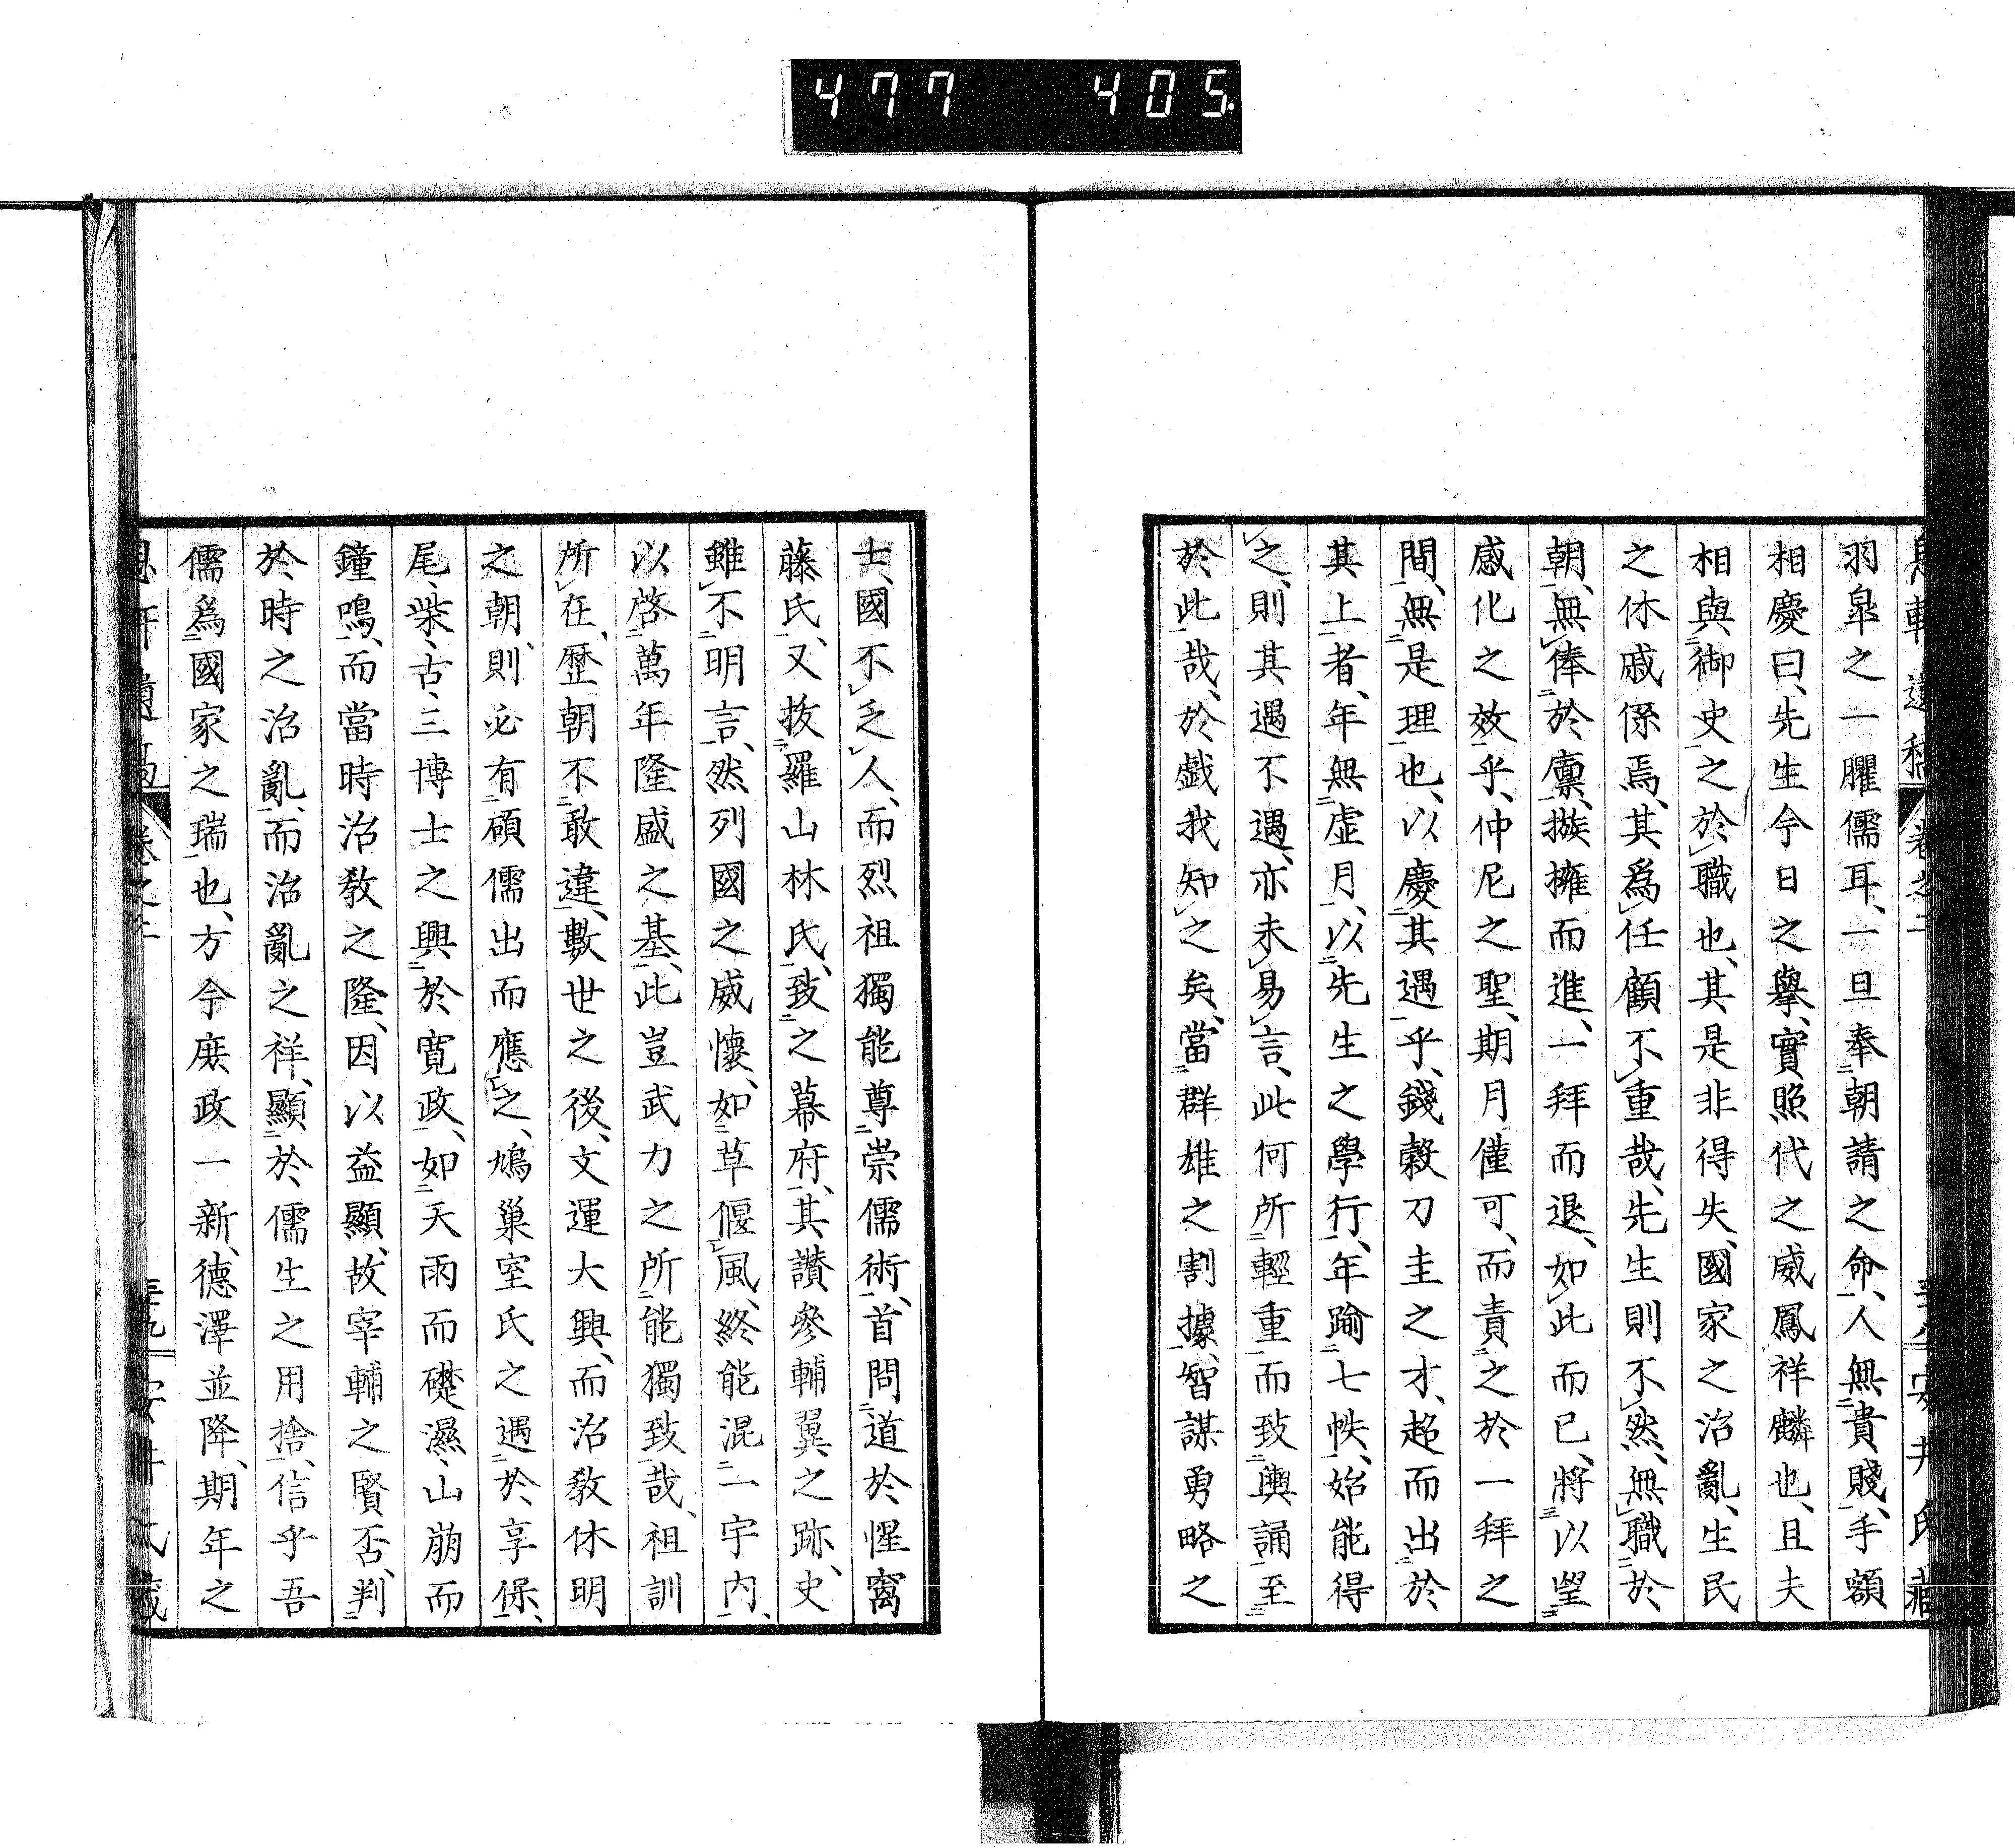 477 - 405
羽皐之一臞儒耳、一旦奉朝請之命、人無貴賤、手額
相慶曰、先生今日之擧、實照代之威鳳祥麟也、且夫
相與御史之於職也、其是非得失、國家之治亂、生民
之休戚係焉、其爲任顧不重哉、先生則不然、無職於
朝、無俸於廩、㨲擁而進、一拜而退、如此而已、將以望
感化之效乎、仲尼之聖、期月僅可、而責之於一拜之
間、無是理也、以慶其遇乎、錢穀刀圭之才、超而出於
其上者、年無虛月、以先生之學行、年踰七帙、始能得
之、則其遇不遇、亦未易言、此何所輕重而致輿誦至
於此哉、於戲我知之矣、當群雄之割據、智謀勇略之
士、國不乏人、而烈祖獨能尊崇儒術、首問道於惺窩
藤氏、又拔羅山林氏、致之幕府、其讃參輔翼之跡、史
雖不明言、然列國之威懷、如草偃風、終能混一宇内、
以啓萬年隆盛之基、此豈武力之所能獨致哉、祖訓
所在、歷朝不敢違、數世之後、文運大興、而治敎休明
之朝、則必有碩儒出而應之、鳩巢室氏之遇於享保、
尾、柴、古、三博士之興於寬政、如天雨而礎濕、山崩而
鐘鳴、而當時治敎之隆、因以益顯、故宰輔之賢否、判
於時之治亂、而治亂之祥、顯於儒生之用捨、信乎吾
儒爲國家之瑞也、方今庶政一新、德澤並降、期年之